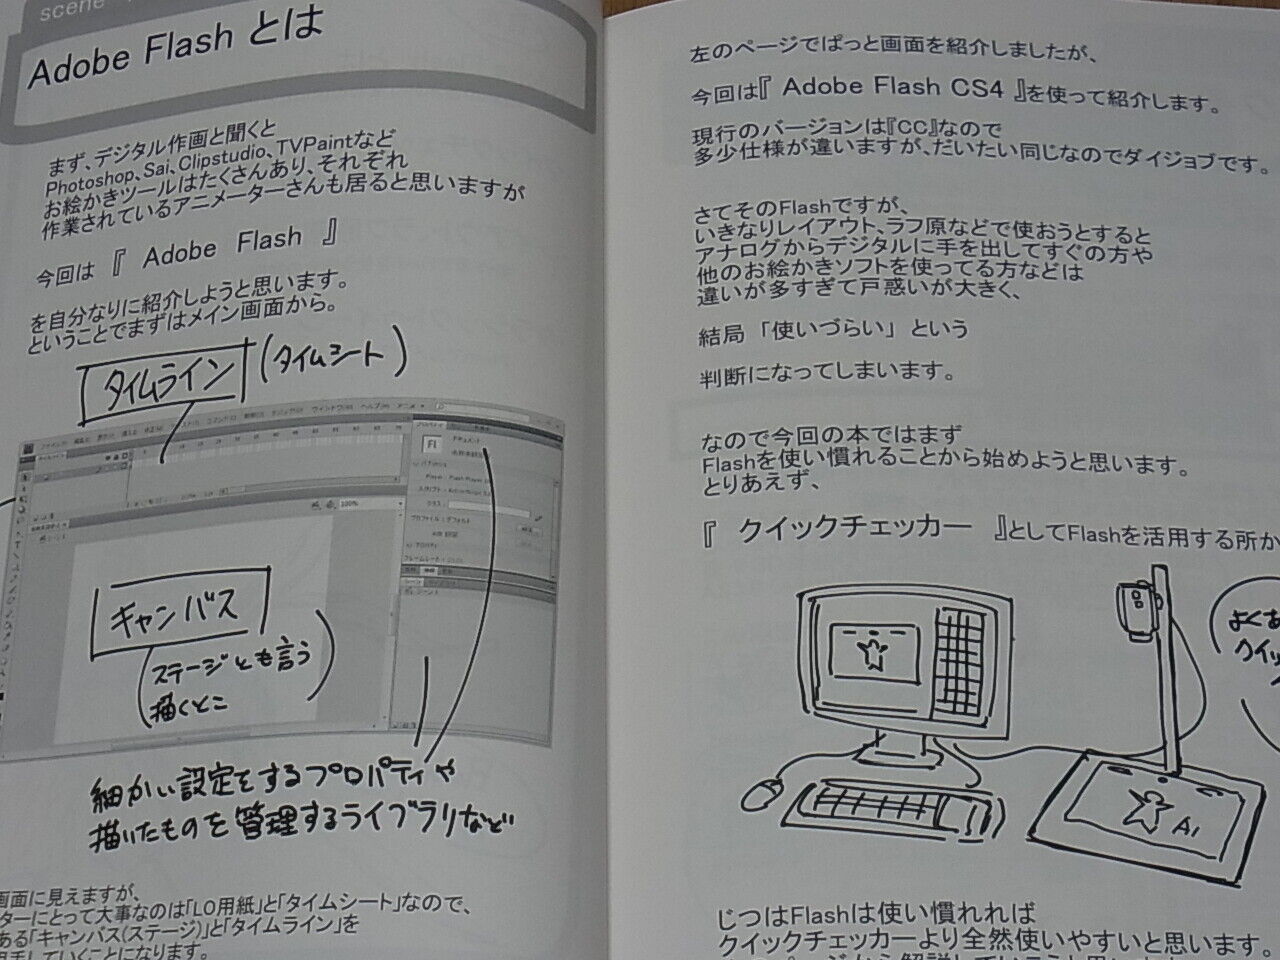 scene
Adobe Flash とは
まず、デジタル作画と聞くと
Photoshop、Sai、Clipstudio、TVPaintなど
お絵かきツールはたくさんあり、それぞれ
作業されているアニメーターさんも居ると思いますが
今回は 『 Adobe Flash 』
を自分なりに紹介しようと思います。
ということでまずはメイン画面から。
タイムライン (タイムシート)
100%
キャンバス
(ステージとも言う
描くとこ)
細かい設定をするプロパティや
描いたものを管理するライブラリなど
画面に見えますが、
ターにとって大事なのは「LO用紙」と「タイムシート」なので、
ある「キャンバス(ステージ)」と「タイムライン」を
していくことになります。
左のページでぱっと画面を紹介しましたが、
今回は『 Adobe Flash CS4 』を使って紹介します。
現行のバージョンは『CC』なので
多少仕様が違いますが、だいたい同じなのでダイジョブです。
さてそのFlashですが、
いきなりレイアウト、ラフ原などで使おうとすると
アナログからデジタルに手を出してすぐの方や
他のお絵かきソフトを使ってる方などは
違いが多すぎて戸惑いが大きく、
結局 「使いづらい」 という
判断になってしまいます。
なので今回の本ではまず
Flashを使い慣れることから始めようと思います。
とりあえず、
『 クイックチェッカー 』としてFlashを活用する所か
よくあ
クイッ
A1
じつはFlashは使い慣れれば
クイックチェッカーより全然使いやすいと思います。